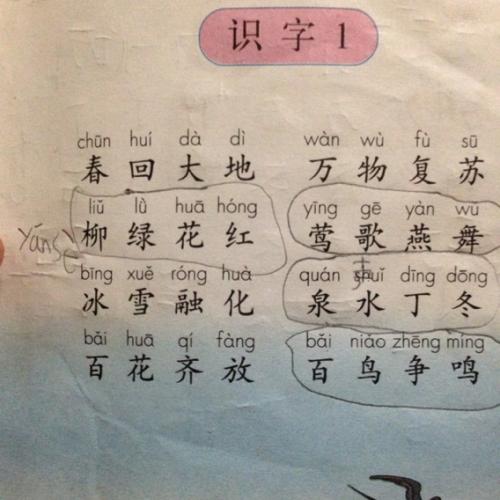 识字1
chūn huí dà dì wàn wù fù sū
春回大地 万物复苏
liǔ lǜ huā hóng yīng gē yàn wǔ
柳绿花红 莺歌燕舞
yánsè
bīng xuě róng huà quán shuǐ dīng dōng
冰雪融化 泉水丁冬
bǎi huā qí fàng bǎi niǎo zhēng míng
百花齐放 百鸟争鸣